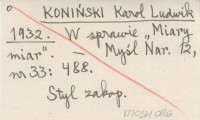 KONIŃSKI Karol Ludwik
1932. W sprawie „Miary
miar". — Myśl Nar. 12,
nr 33: 488.
Styl zakop.